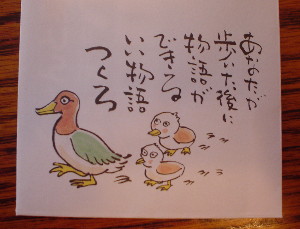 あなたが
歩いた後に
物語が
できる
いい物語
つくろ